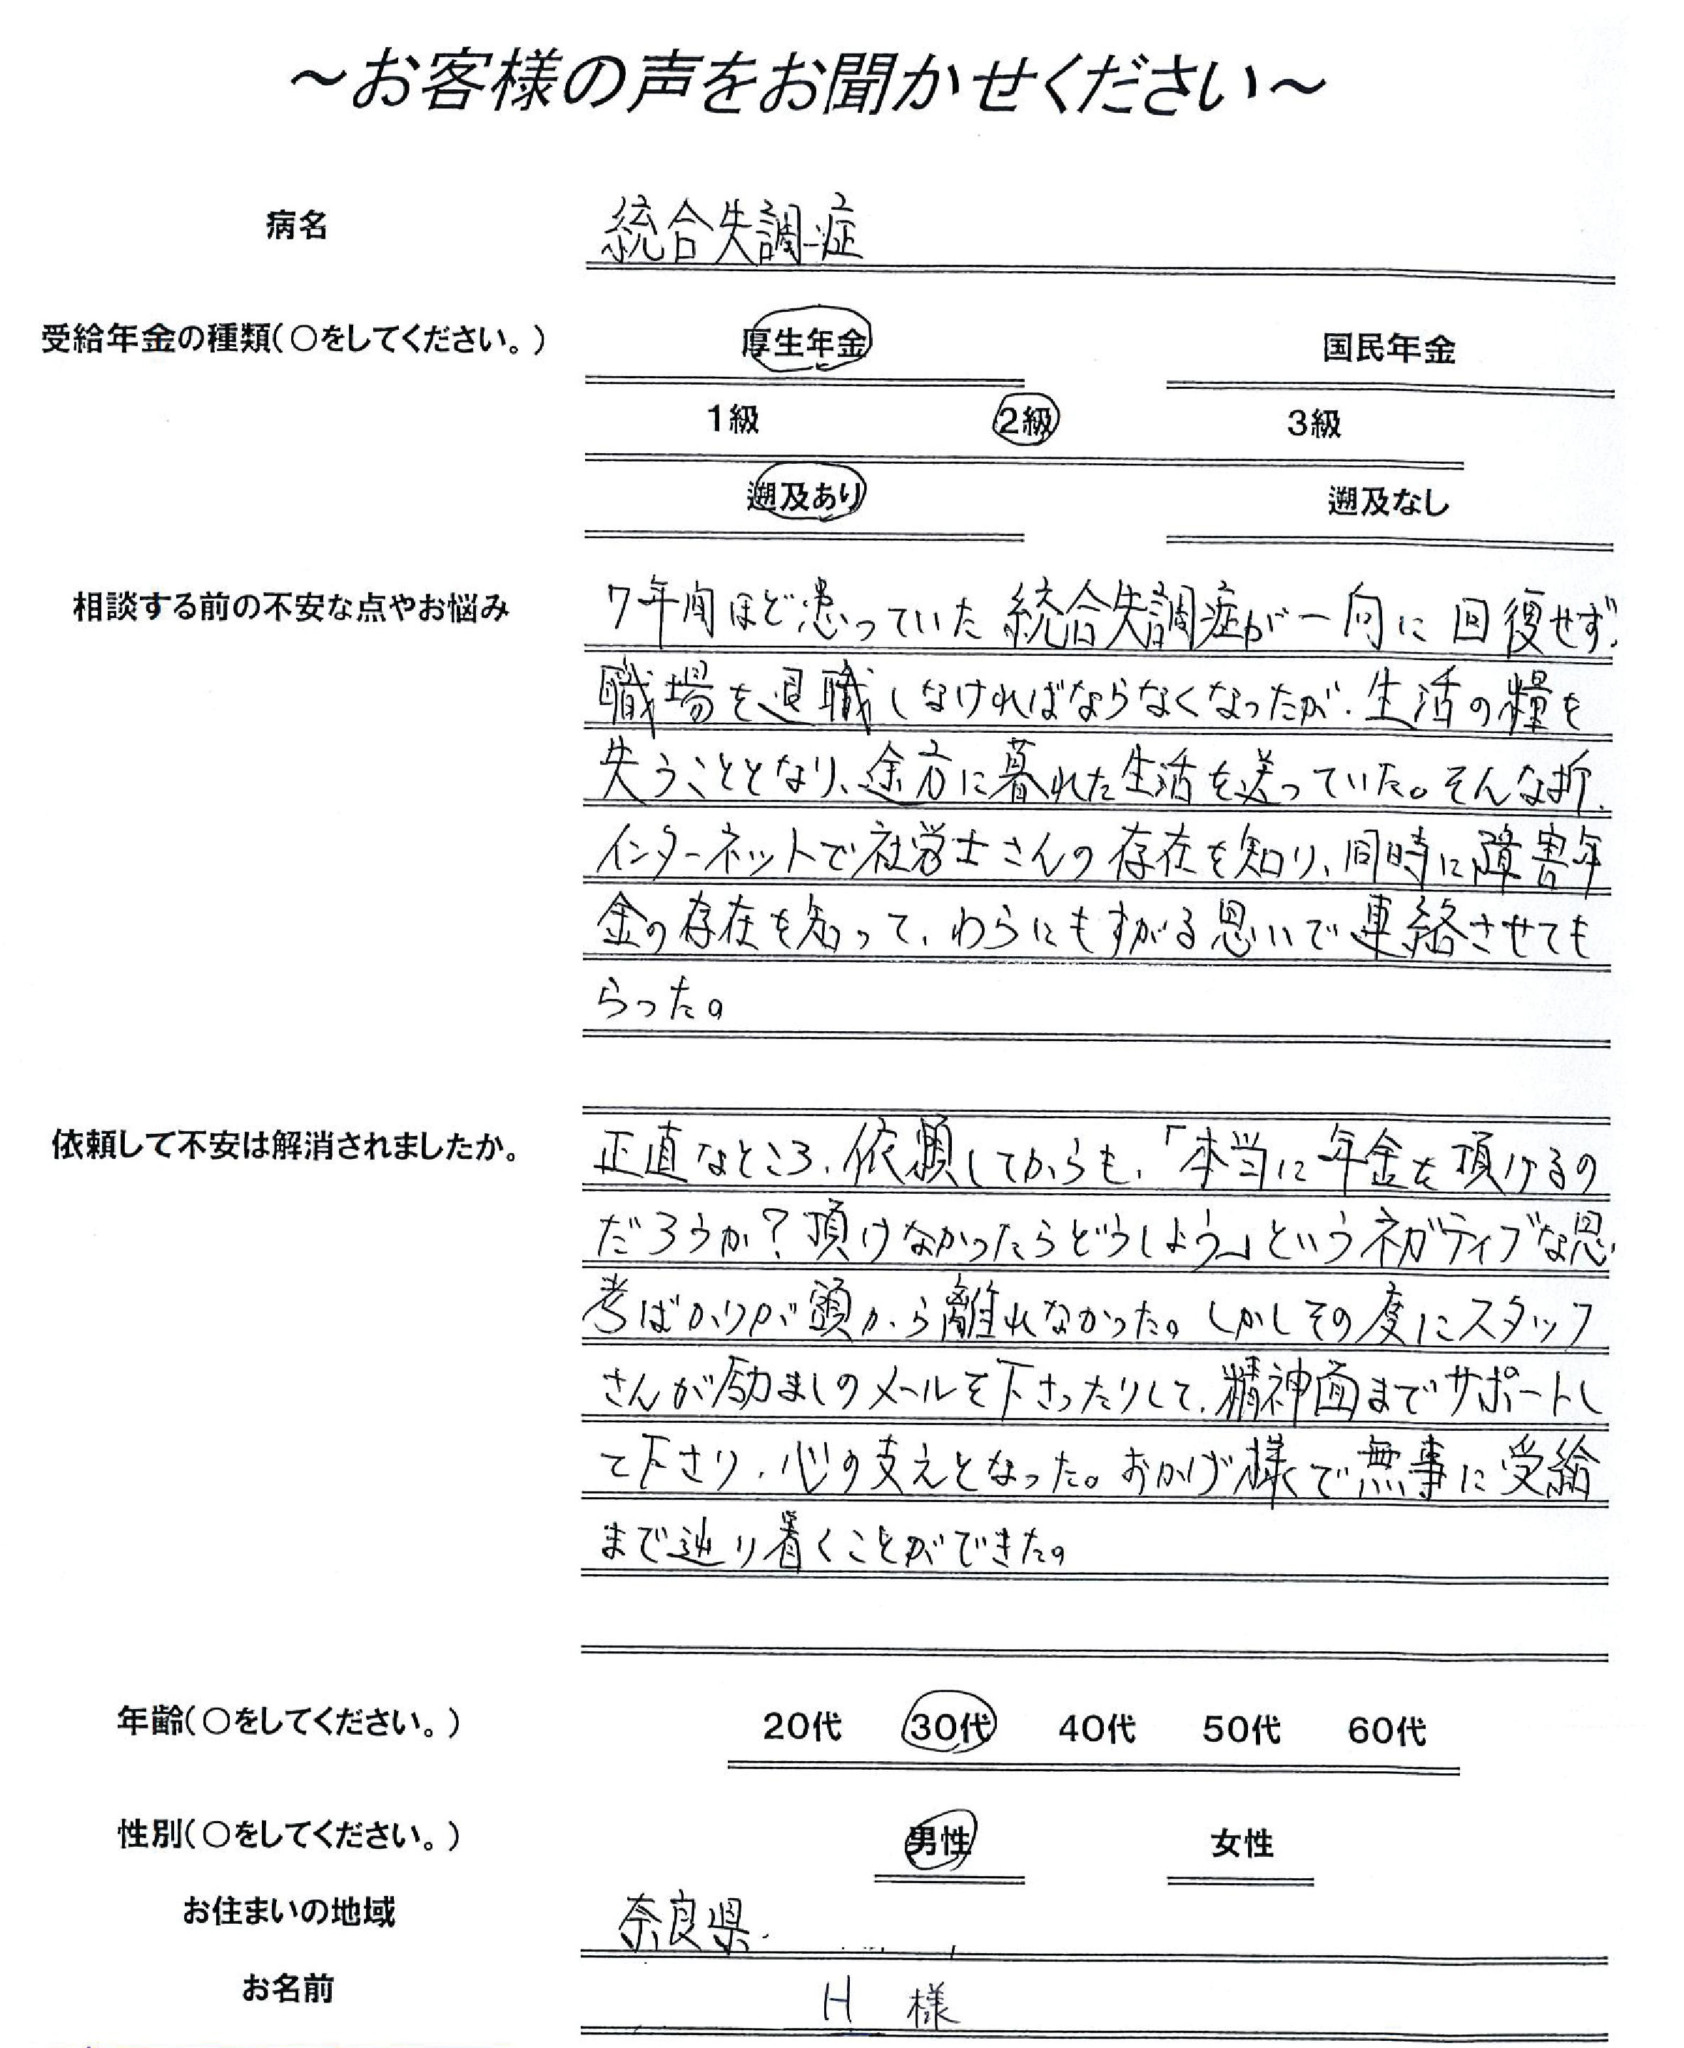 ～お客様の声をお聞かせください～
病名
統合失調症
受給年金の種類(○をしてください。)
厚生年金 国民年金
1級 2級 3級
遡及あり 遡及なし
相談する前の不安な点やお悩み
7年間ほど患っていた統合失調症が一向に回復せず、
職場を退職しなければならなくなったが、生活の糧を
失うこととなり、途方に暮れた生活を送っていた。そんな折、
インターネットで社労士さんの存在を知り、同時に障害年
金の存在を知って、わらにもすがる思いで連絡させても
らった。
依頼して不安は解消されましたか。
正直なところ、依頼してからも、「本当に年金を頂けるの
だろうか？頂けなかったらどうしよう」というネガティブな思
考ばかりが頭から離れなかった。しかしその度にスタッフ
さんが励ましのメールを下さったりして、精神面までサポートし
て下さり、心の支えとなった。おかげ様で無事に受給
まで辿り着くことができた。
年齢(○をしてください。)
20代 30代 40代 50代 60代
性別(○をしてください。)
男性 女性
お住まいの地域
奈良県
お名前
H 様